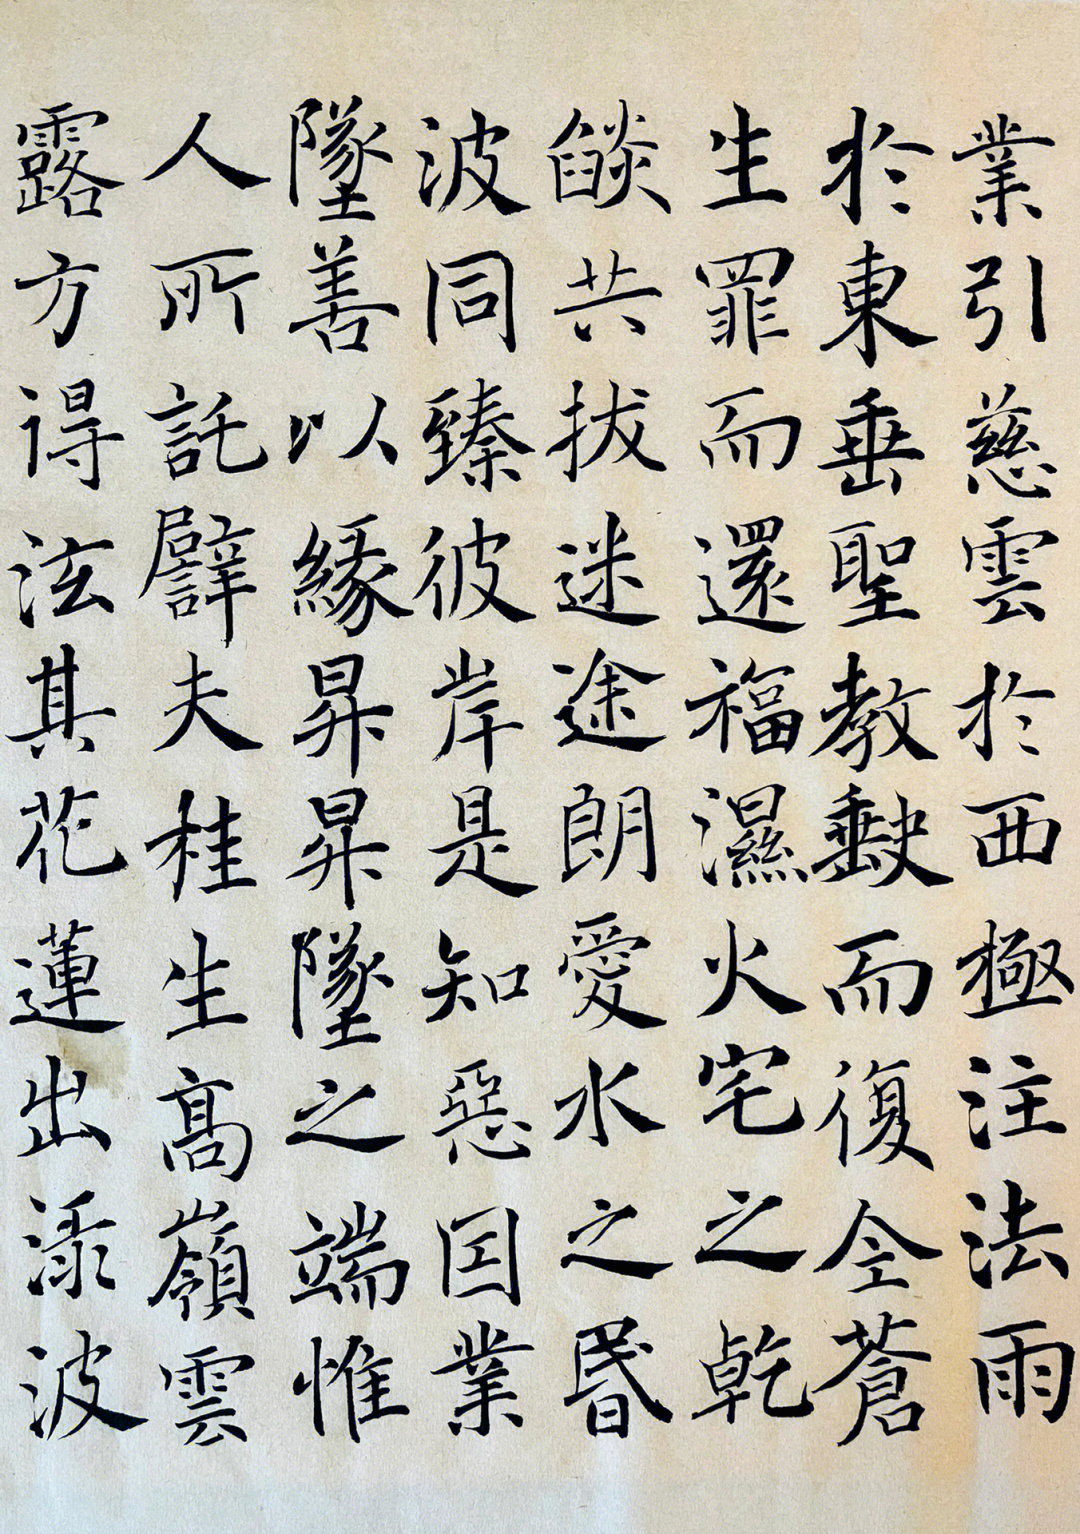 業引慈雲於西極注法雨
於東垂聖教缺而復全蒼
生罪而還福濕火宅之乾
燄共拔迷途朗愛水之昬
波同臻彼岸是知惡因業
墜善以緣昇昇墜之端惟
人所託譬夫桂生高嶺雲
露方得泫其花蓮出淥波